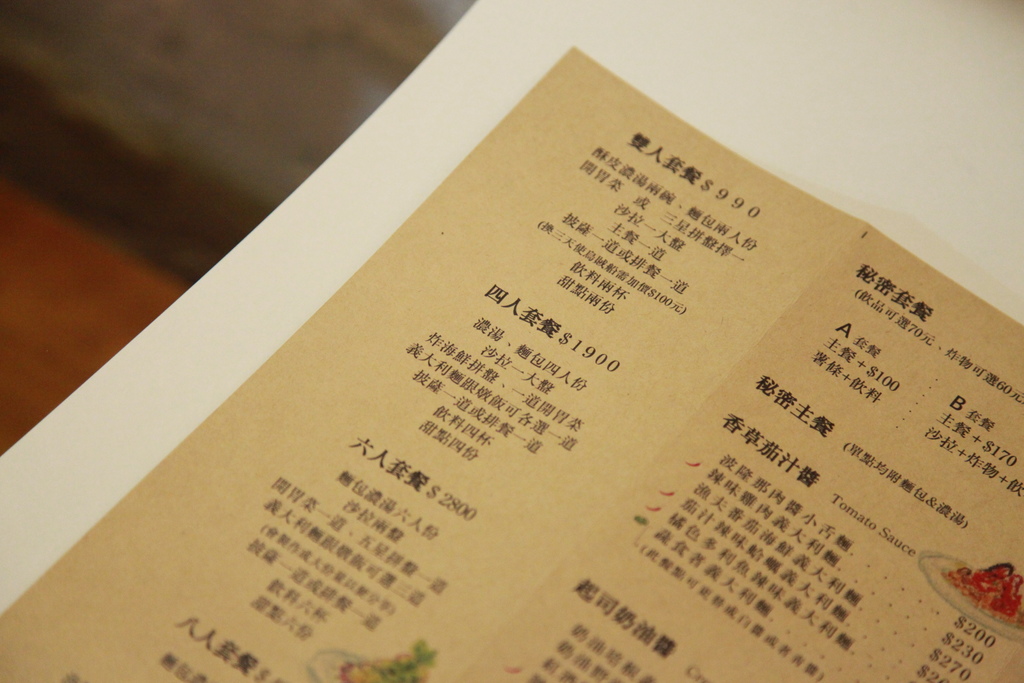 雙人套餐$990
酥皮濃湯兩碗、麵包兩人份
開胃菜 或 三星拼盤擇一
沙拉一大盤
主餐一道
披薩一道或排餐一道
(換三天使烏賊船需加價$100元)
飲料兩杯
甜點兩份
四人套餐$1900
濃湯、麵包四人份
沙拉一大盤
炸海鮮拼盤、二道開胃菜
義大利麵跟燉飯可各選一道
披薩一道或排餐一道
飲料四杯
甜點四份
六人套餐$2800
麵包濃湯六人份
沙拉兩盤
開胃菜一道、五星拼盤一道
義大利麵跟燉飯可選三道
披薩一道或排餐一道
飲料六杯
甜點六份
八人套餐$
秘密套餐
(飲品可選70元、炸物可選60元
A 套餐
主餐+$100
薯條+飲料
B 套餐
主餐+$170
沙拉+炸物+飲
秘密主餐 (單點均附麵包&濃湯)
香草茄汁醬 Tomato Sauce
波隆那肉醬小舌麵
辣味雞肉義大利麵
漁夫番茄海鮮義大利麵
茄汁辣味蛤蠣義大利麵
橘色多利魚辣味義大利麵
蔬食者義大利麵
(此餐點可更換成白醬或者青醬)
$200
$230
$270
起司奶油醬